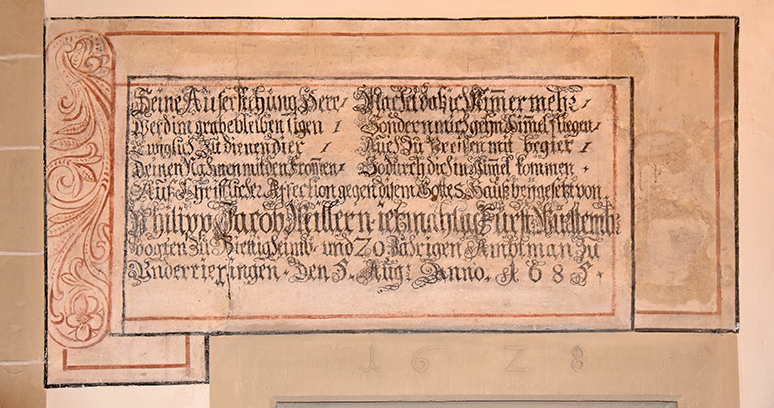 Deine Auferstehung Herr / Macht daß ich Nimmermehr /
Werd im grabe bleiben ligen / Sondern mich gehn Himmel fliegen /
Ewiglich Zu dienen dier / Auch Zu Preißen mit begier /
Deinen Nahmen mit den frommen / So durch dich in Himmel kommen
Auß Christlicher Affection gegen disem Gottes Hauß beygesetzt von
Philipp Jacob Millern ietzmahlig Fürst: Würtemb:
vogten Zu Bietigheimb und 20 Jährigen Ambtman Zu
Undereiexingen Den 5. Aug: Anno 1685
1628